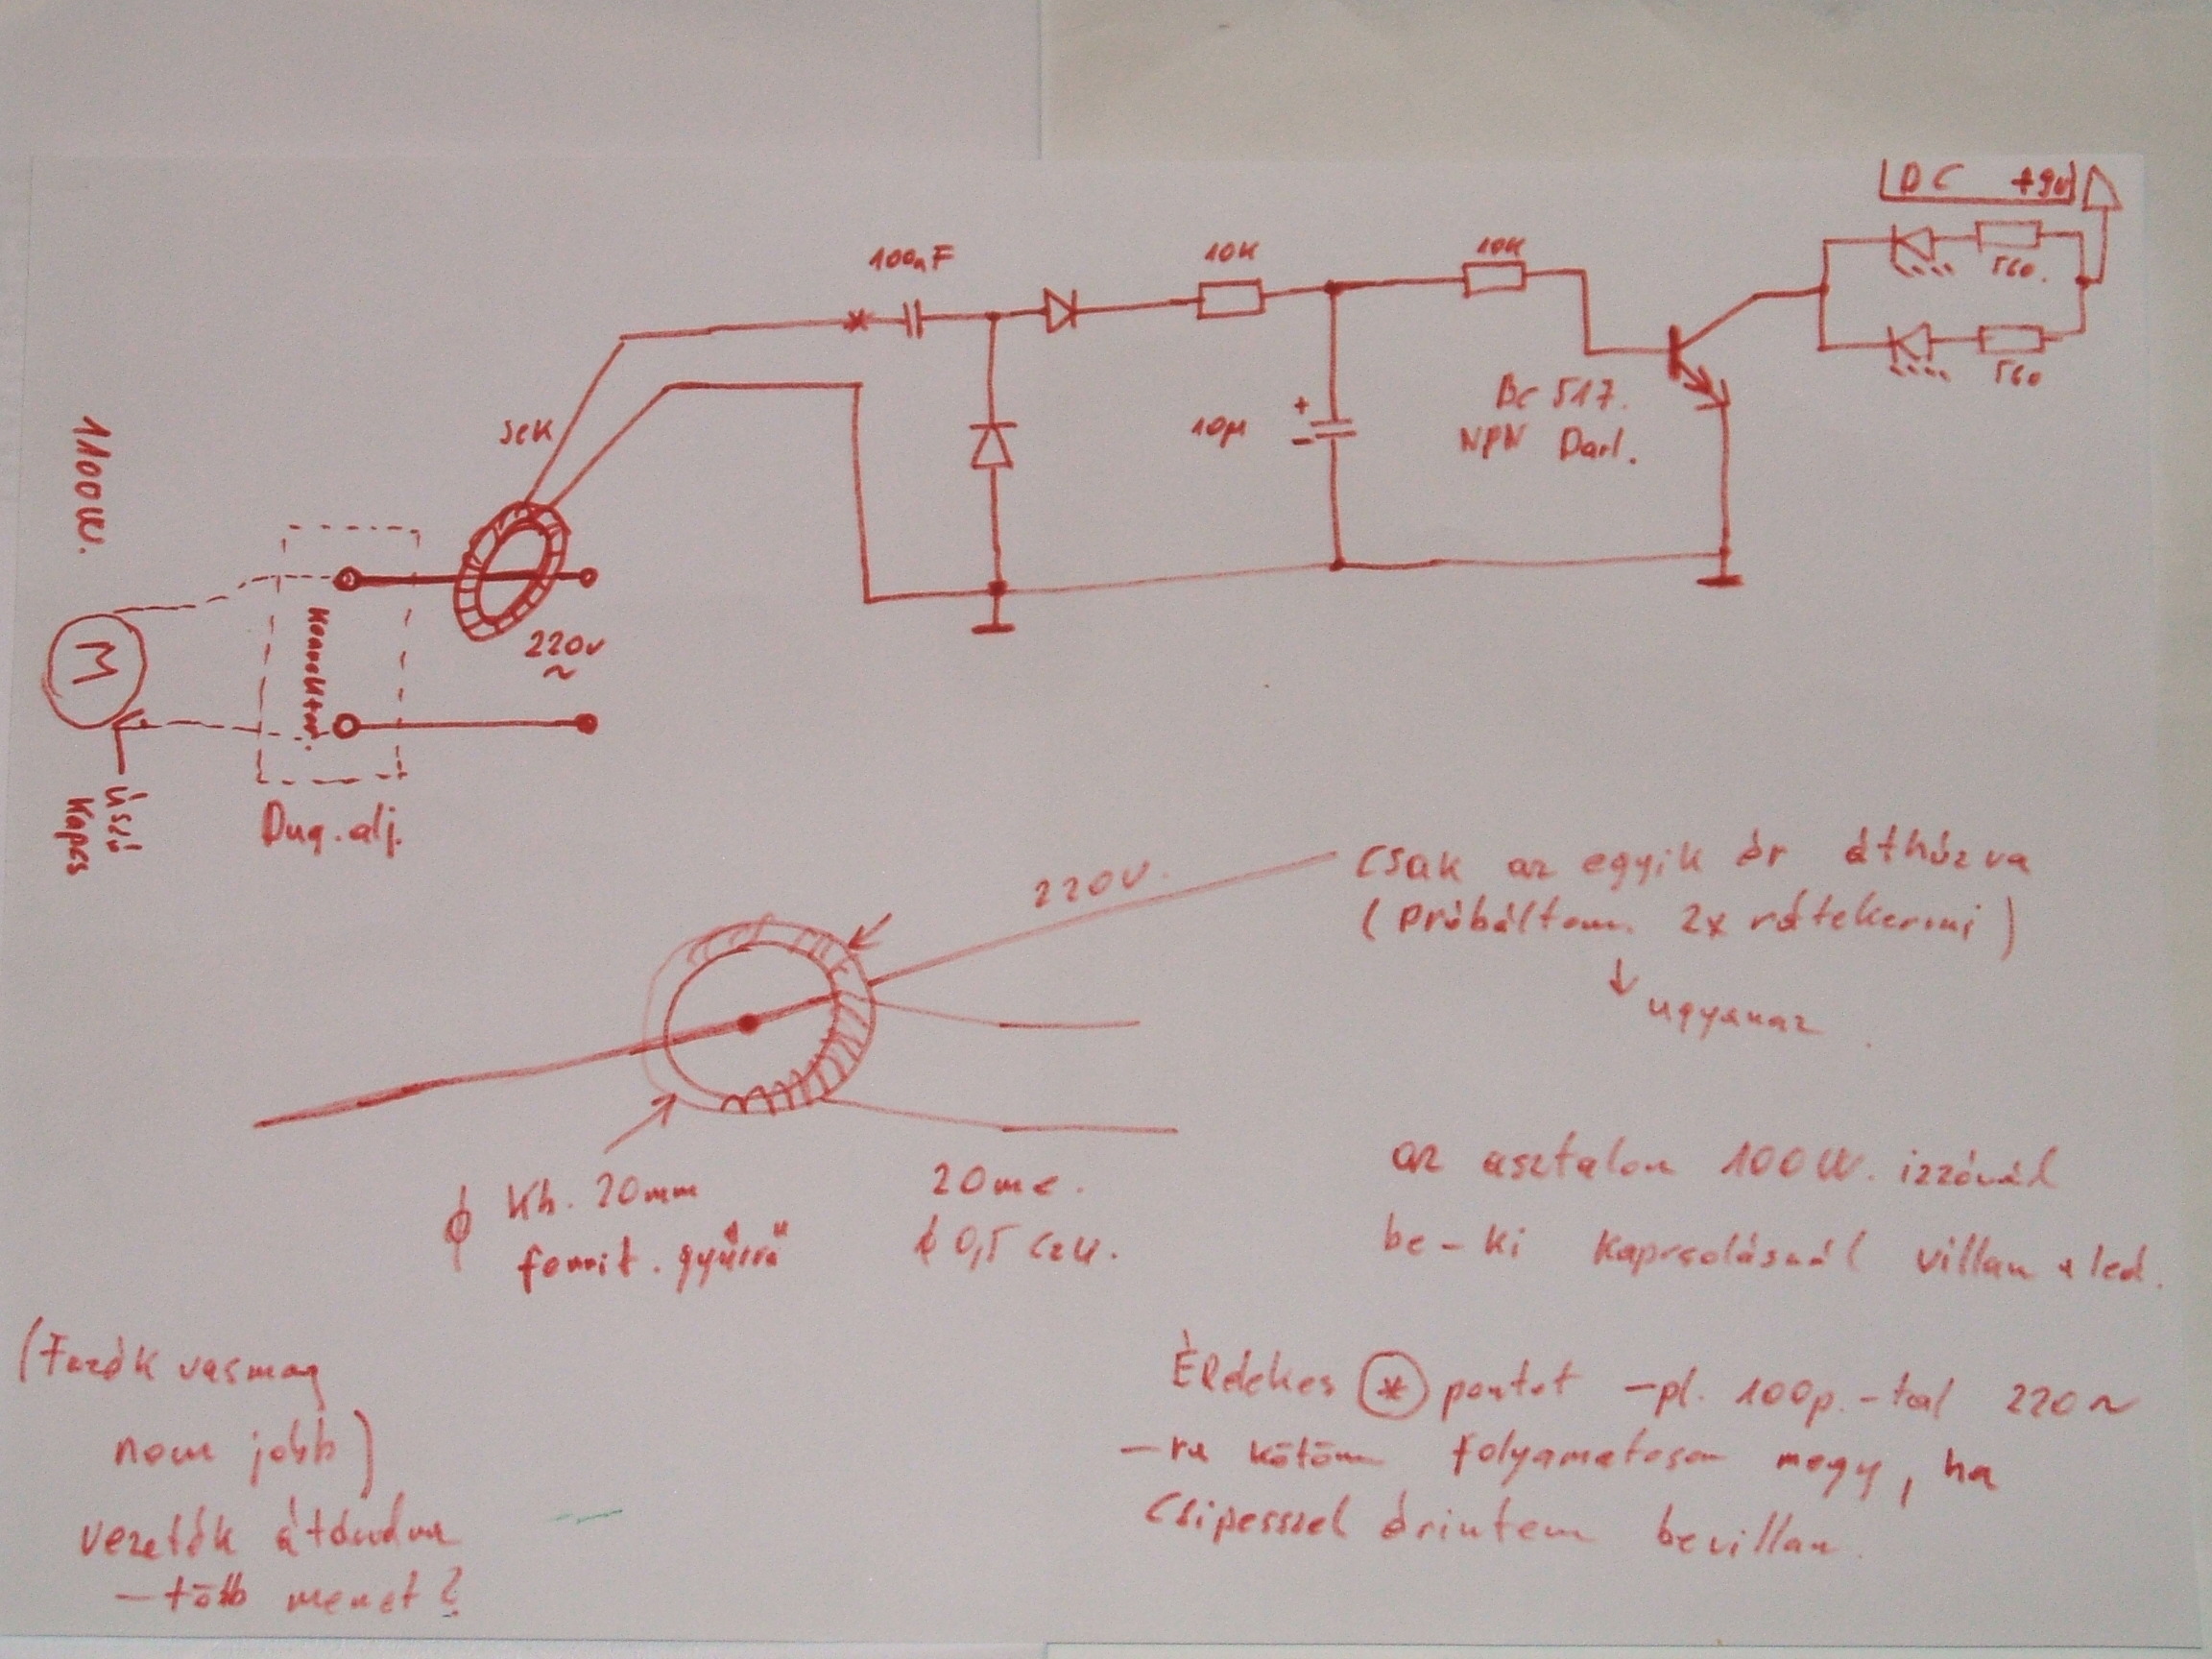 DC +9v
100nF
10K
10K
560.
560
BC 517.
NPN Darl.
10µ
+
-
sek
1100W.
220v
~
M
Konnektor.
Úszó
Kapcs
Dug.alj.
220V.
Csak az egyik ér áthúzva
(Próbáltam 2x rátekerni)
ugyanaz
Kh. 20mm
ferrit. gyűrű
20me.
0,5 CZU.
az asztalon 100W. izzónál
be-ki kapcsolásnál villan a led.
(Fazék vasmag
nem jobb)
vezeték átdudva
-több menet?
Érdekes * pontot -pl. 100p.-tal 220~
-ra kötöm folyamatosan megy, ha
Csipesszel érintem bevillan.